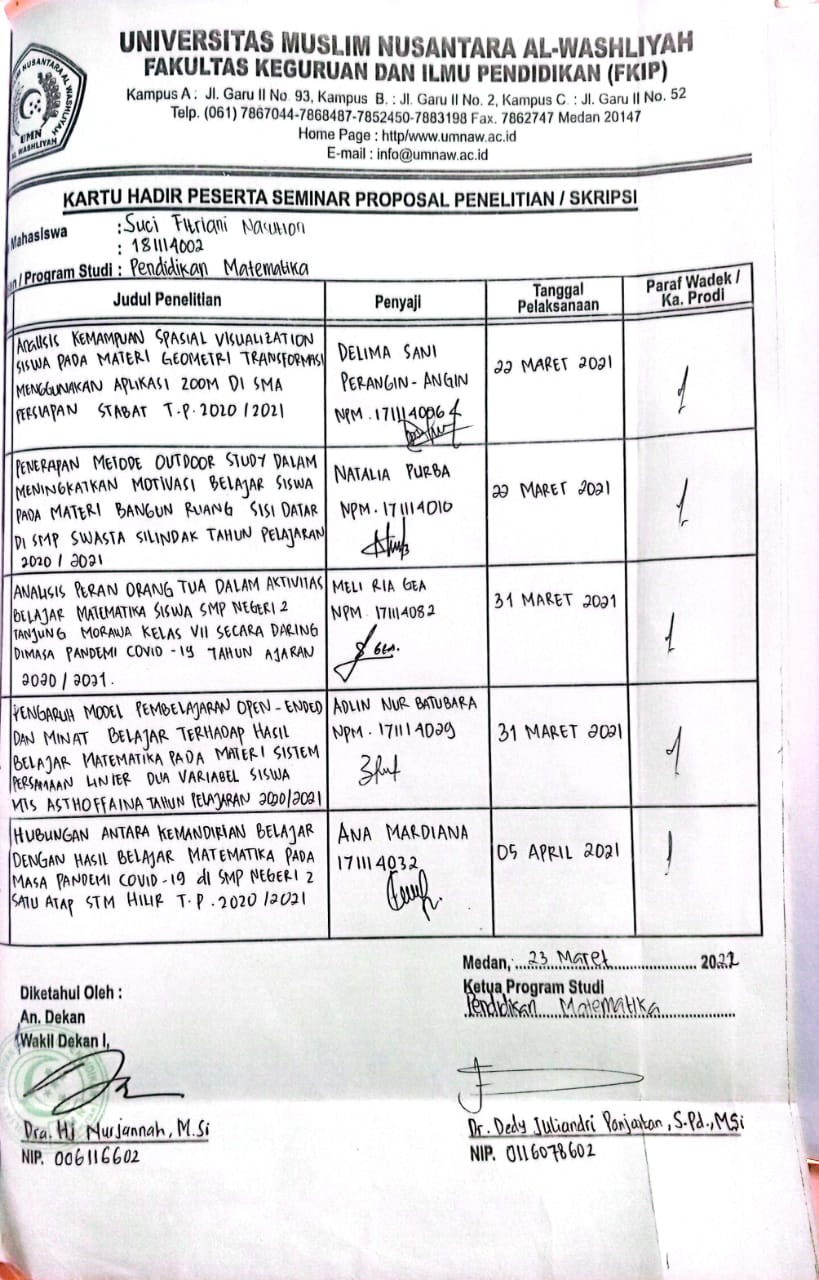 UNIVERSITAS MUSLIM NUSANTARA AL-WASHLIYAH
FAKULTAS KEGURUAN DAN ILMU PENDIDIKAN (FKIP)
Kampus A : Jl. Garu II No. 93, Kampus B. : Jl. Garu II No. 2, Kampus C. : Jl. Garu II No. 52
Telp. (061) 7867044-7868487-7852450-7883198 Fax. 7862747 Medan 20147
Home Page : http/www.umnaw.ac.id
E-mail : info@umnaw.ac.id
UMN
AL WASHLIYAH
KARTU HADIR PESERTA SEMINAR PROPOSAL PENELITIAN / SKRIPSI
Mahasiswa : Suci Fitriani Nasution
: 181114002
/ Program Studi : Pendidikan Matematika
Judul Penelitian
Penyaji
Tanggal
Pelaksanaan
Paraf Wadek /
Ka. Prodi
Analisis KEMAMPUAN SPASIAL VISUALIZATION
SISWA PADA MATERI GEOMETRI TRANSFORMASI
MENGGUNAKAN APLIKASI ZOOM DI SMA
PERSIAPAN STABAT T.P. 2020 / 2021
DELIMA SANI
PERANGIN - ANGIN
NPM . 171114006
22 MARET 2021
PENERAPAN METODE OUTDOOR STUDY DALAM
MENINGKATKAN MOTIVASI BELAJAR SISWA
PADA MATERI BANGUN RUANG SISI DATAR
DI SMP SWASTA SILINDAK TAHUN PELAJARAN
2020 / 2021
NATALIA PURBA
NPM . 171114010
22 MARET 2021
ANALISIS PERAN ORANG TUA DALAM AKTIVITAS
BELAJAR MATEMATIKA SISWA SMP NEGERI 2
TANJUNG MORAWA KELAS VII SECARA DARING
DIMASA PANDEMI COVID -19 TAHUN AJARAN
2020 / 2021.
MELI RIA GEA
NPM . 171114082
31 MARET 2021
PENGARUH MODEL PEMBELAJARAN OPEN - ENDED
DAN MINAT BELAJAR TERHADAP HASIL
BELAJAR MATEMATIKA PADA MATERI SISTEM
PERSAMAAN LINIER DUA VARIABEL SISWA
MTS ASTHOFFAINA TAHUN PELAJARAN 2020/2021
ADLIN NUR BATUBARA
NPM . 171114029
31 MARET 2021
HUBUNGAN ANTARA KEMANDIRIAN BELAJAR
DENGAN HASIL BELAJAR MATEMATIKA PADA
MASA PANDEMI COVID -19 di SMP NEGERI 2
SATU ATAP STM HILIR T.P. 2020 /2021
ANA MARDIANA
171114032
05 APRIL 2021
Medan, 23 Maret 2022
Diketahui Oleh :
An. Dekan
Wakil Dekan I,
Dra. Hj Nurjannah, M.Si
NIP. 006116602
Ketua Program Studi
Pendidikan Matematika
Dr. Dedy Juliandri Panjaitan, S.Pd., M.Si
NIP. 0116078602